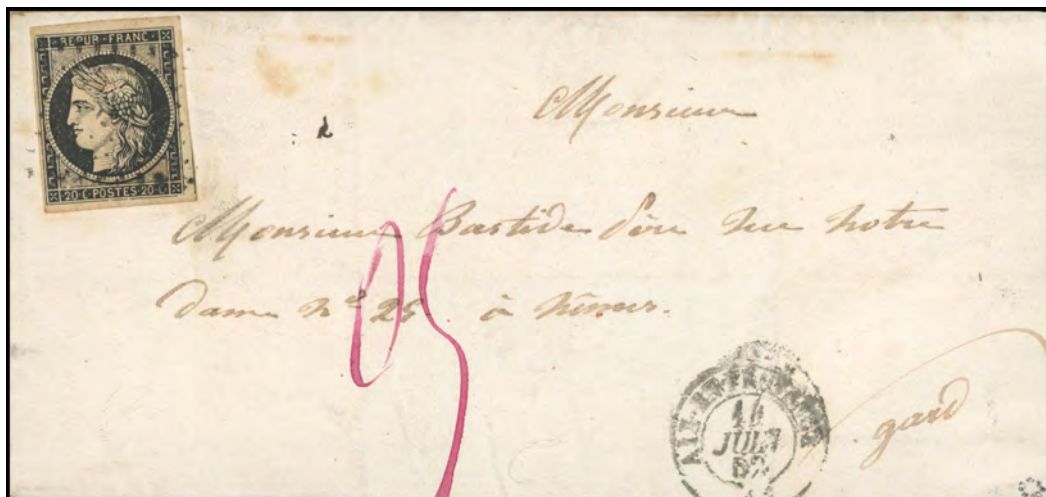 REPUB·FRANC·
20 c POSTES 20 c
Monsieur
Monsieur Bastide rue notre
dame n° 25. à Nîmes.
05
AIX-EN-PROVENCE
JUIL
52
gard